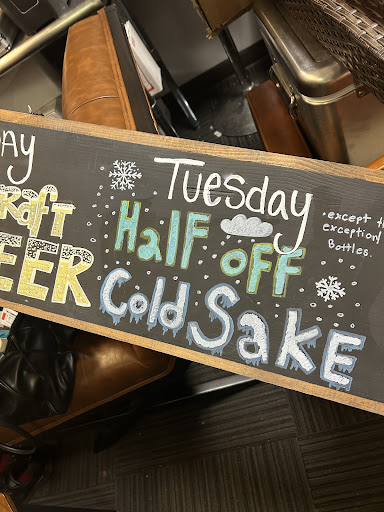 AY
Craft
EER
Tuesday
Half off
Cold Sake
·except
exception
Bottles.